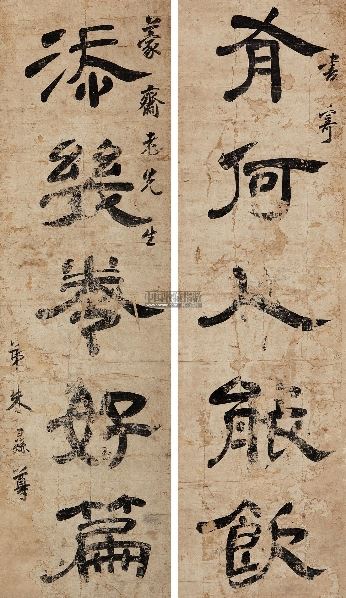 書寄
有何人能飲
蒙齋老先生
添幾卷好篇
弟朱彝尊